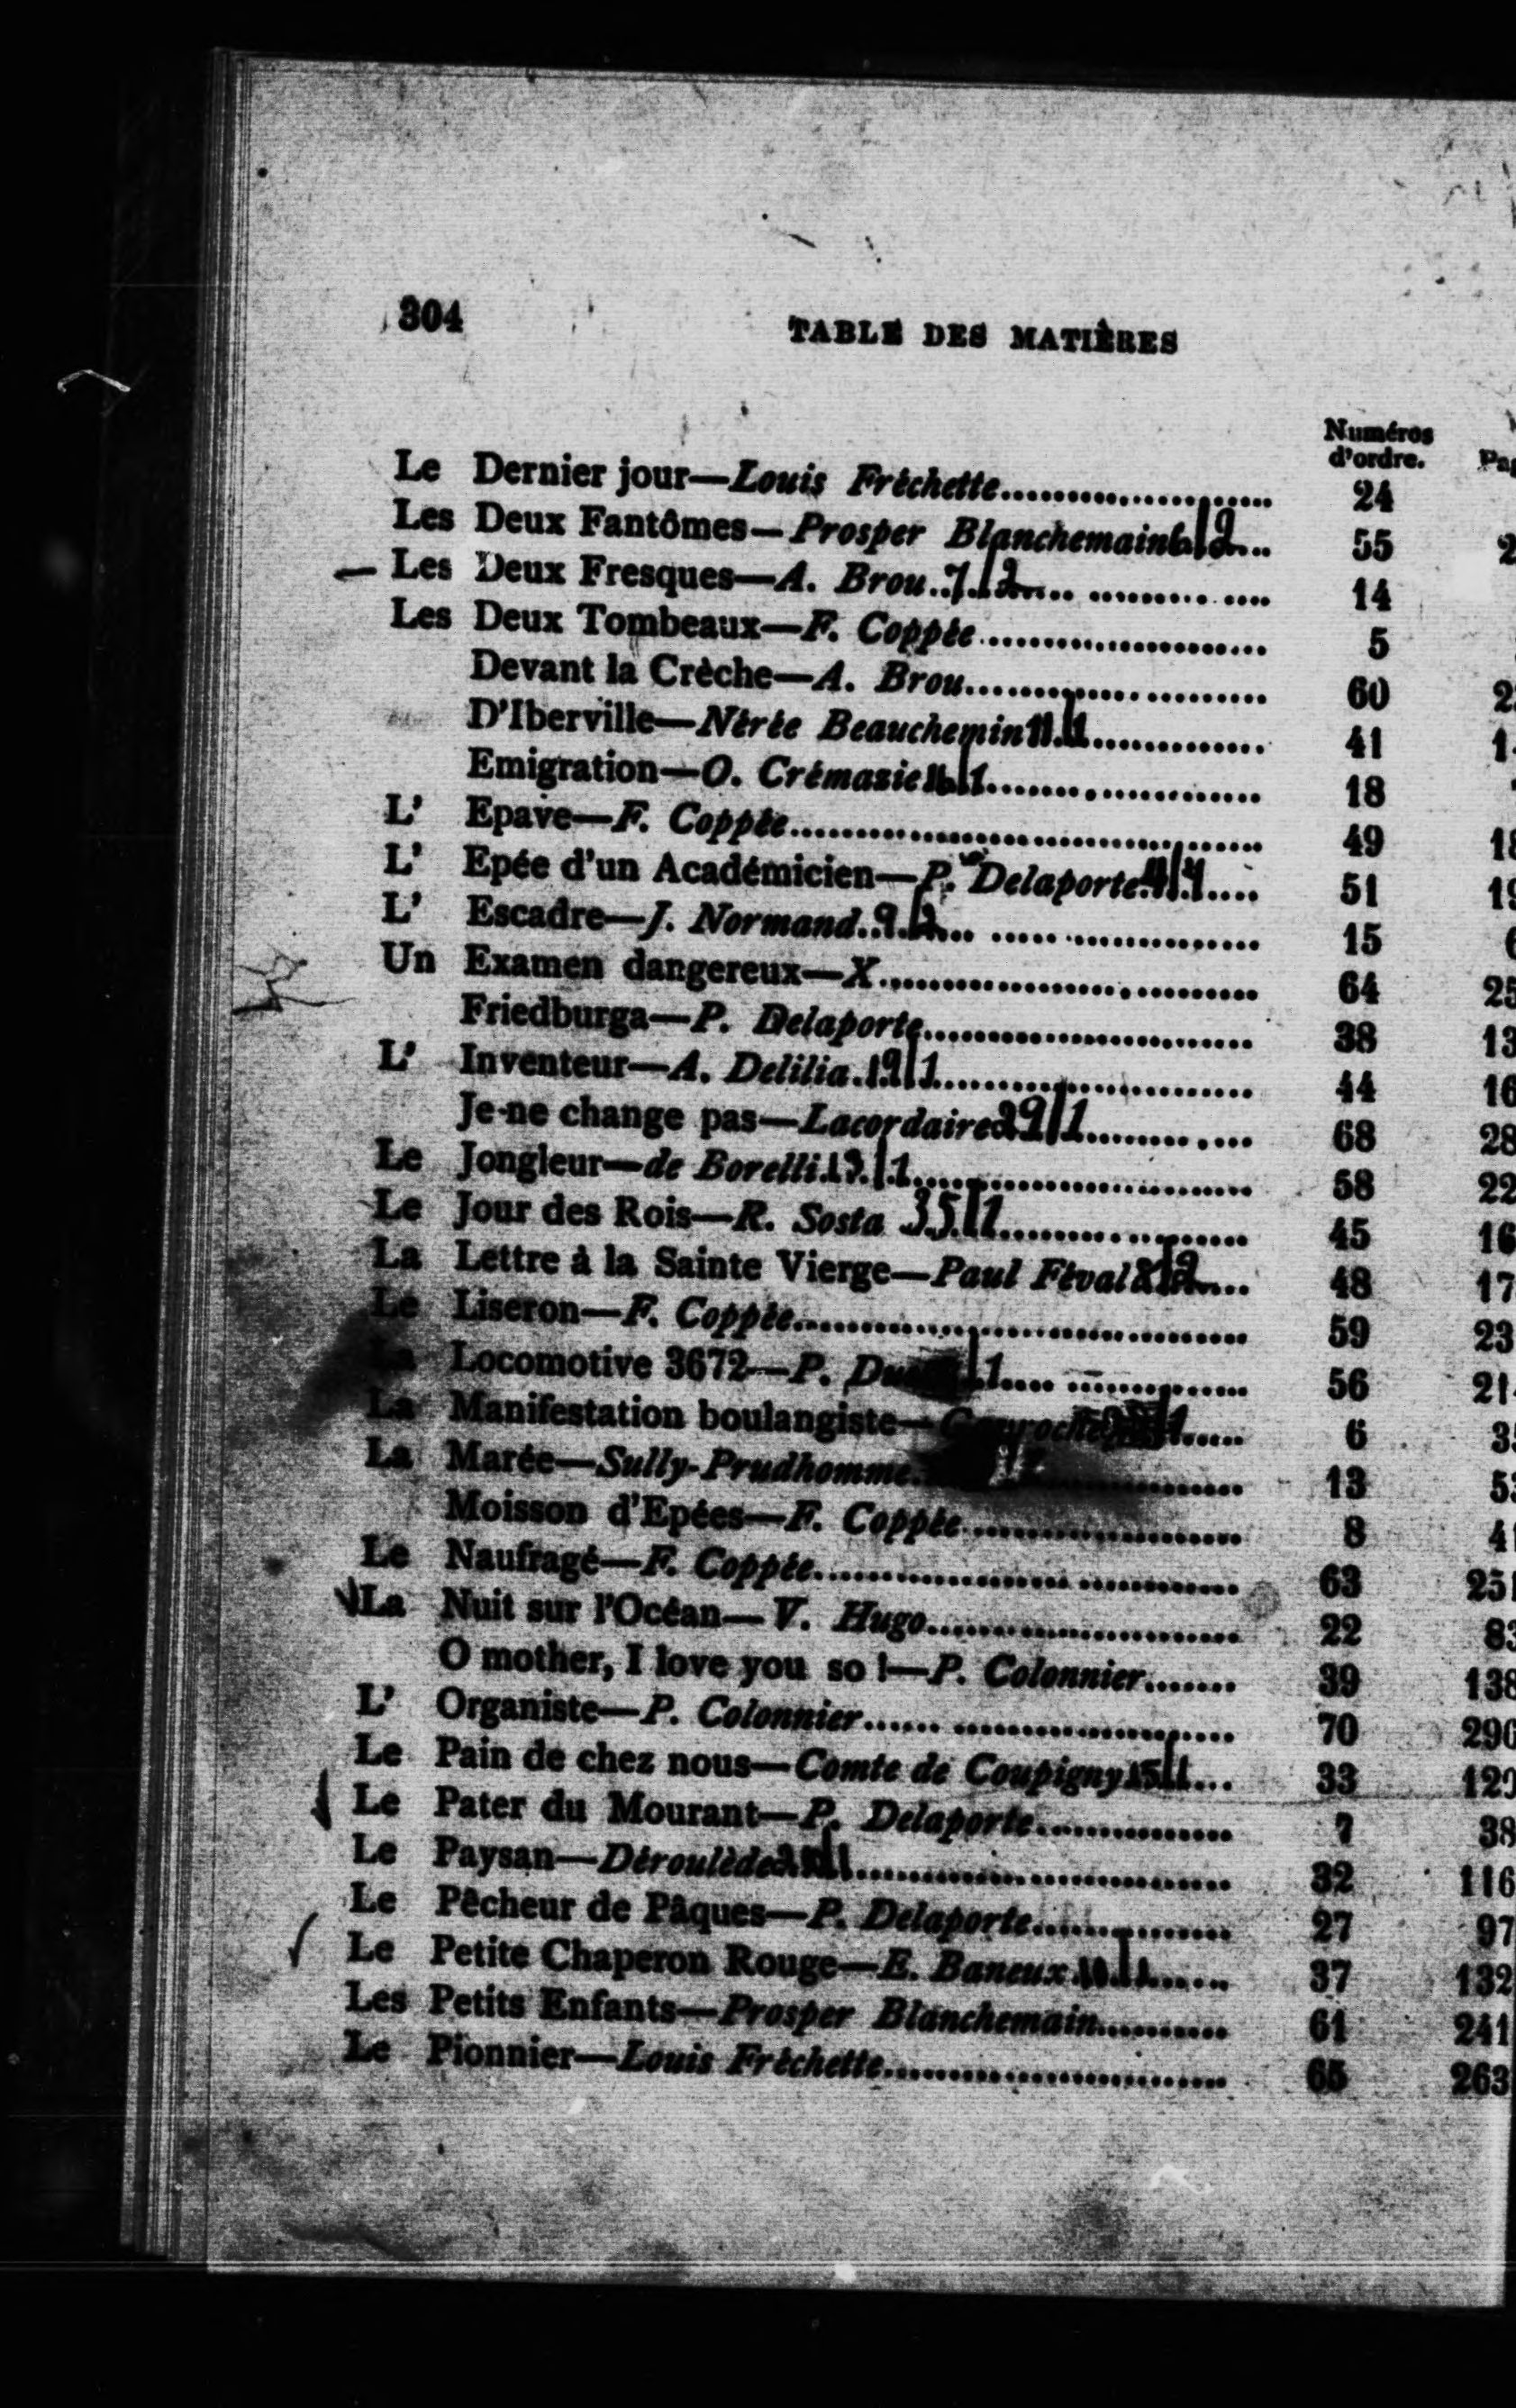 304
TABLE DES MATIÈRES
Numéros
d'ordre. Pa
Le Dernier jour—Louis Fréchette........................ 24
Les Deux Fantômes—Prosper Blanchemain 6/2.... 55 2
— Les Deux Fresques—A. Brou..7/2.................... 14
Les Deux Tombeaux—F. Coppée........................ 5
Devant la Crèche—A. Brou........................ 60 2
D'Iberville—Nérée Beauchemin 11/1.............. 41 1
Emigration—O. Crémazie 16/1........................ 18
L' Epave—F. Coppée........................................ 49 18
L' Epée d'un Académicien—P. Delaporte.4/4.... 51 19
L' Escadre—J. Normand..9/2........................ 15 6
Un Examen dangereux—X................................ 64 25
Friedburga—P. Delaporte........................... 38 13
L' Inventeur—A. Delilia.19/1........................... 44 16
Je ne change pas—Lacordaire 29/1............. 68 28
Le Jongleur—de Borelli.13./1........................... 58 22
Le Jour des Rois—R. Sosta 35/1.................... 45 16
La Lettre à la Sainte Vierge—Paul Féval 8/2.... 48 17
Le Liseron—F. Coppée.................................... 59 23
La Locomotive 3672—P. /1.................. 56 21
La Manifestation boulangiste— ...... 6 3
La Marée—Sully-Prudhomme.................... 13 5
Moisson d'Epées—F. Coppée........................ 8 4
Le Naufragé—F. Coppée................................ 63 251
La Nuit sur l'Océan—V. Hugo........................ 22 83
O mother, I love you so !—P. Colonnier....... 39 138
L' Organiste—P. Colonnier............................ 70 290
Le Pain de chez nous—Comte de Coupigny 15/1... 33 129
Le Pater du Mourant—P. Delaporte............... 7 38
Le Paysan—Déroulède............................... 32 116
Le Pêcheur de Pâques—P. Delaporte............... 27 97
Le Petite Chaperon Rouge—E. Baneux.10/1...... 37 132
Les Petits Enfants—Prosper Blanchemain.......... 61 241
Le Pionnier—Louis Fréchette........................... 65 263